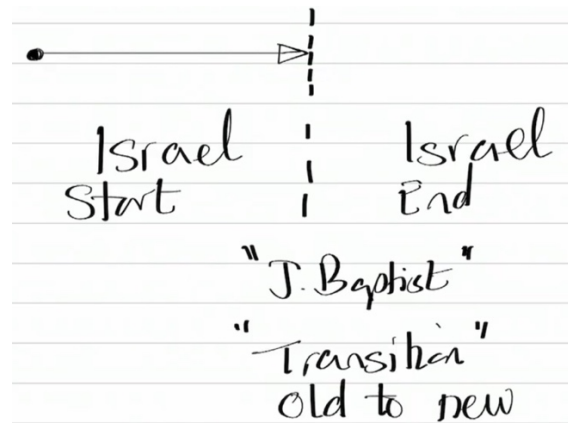 Israel Israel
Start End
"J. Baptist"
"Transition"
old to new